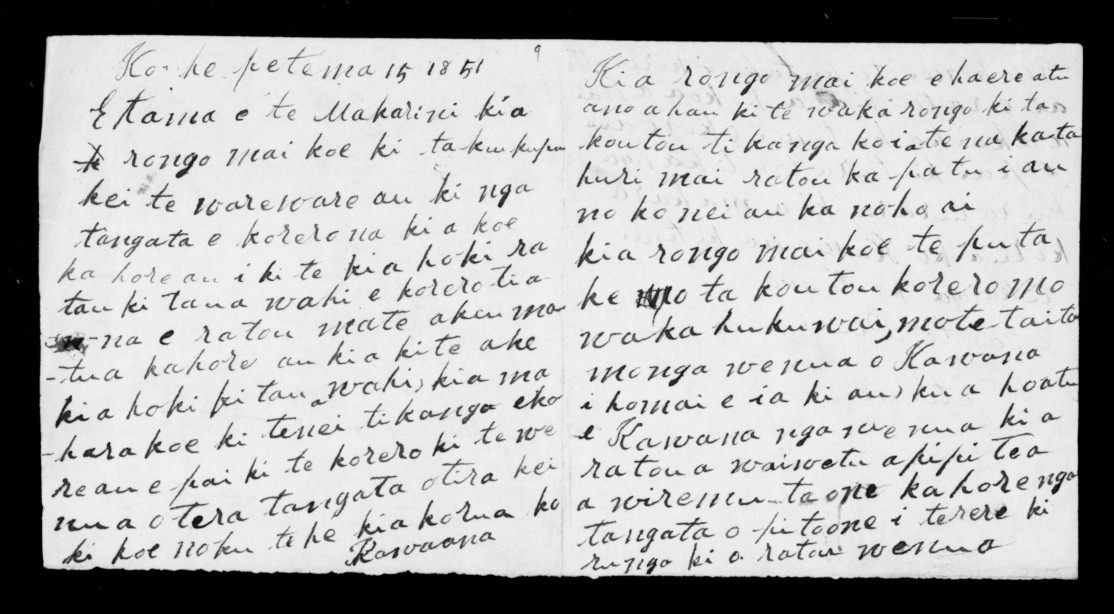 Ko he petema 15 1851
E tama e te Makarini kia
rongo mai koe ki taku kupu
kei te wareware au ki nga
tangata e korero na ki a koe
ka hore au i kite kia hoki ra
tau ki taua wahi e korero tia
na e ratou mate aku ma
tua kahore au kia kite ake
kia hoki ki taua wahi, kia ma
harakoe ki tenei tikanga eko
re au e pai ki te korero ki te we
nua o tera tangata otira kei
ki koe noku te he kia korua ko
Kawaana
9
Kia rongo mai koe e haere atu
ano ahau ki te waka rongo ki ta
koutou tikanga ko i a te na ka ta
huri mai ratou ka patu i au
no ko nei au ka noho ai
kia rongo mai koe te puta
ke o ta koutou korero mo
waka huku wai, mo te taito
monga wenua o Kawana
i homai e ia ki au, kua hoatu
e Kawana nga wenua ki a
ratou a waiwetu a pipitea
a wiremu ta one ka hore nga
tangata o pitoone i terere ki
runga ki a ratou wenua